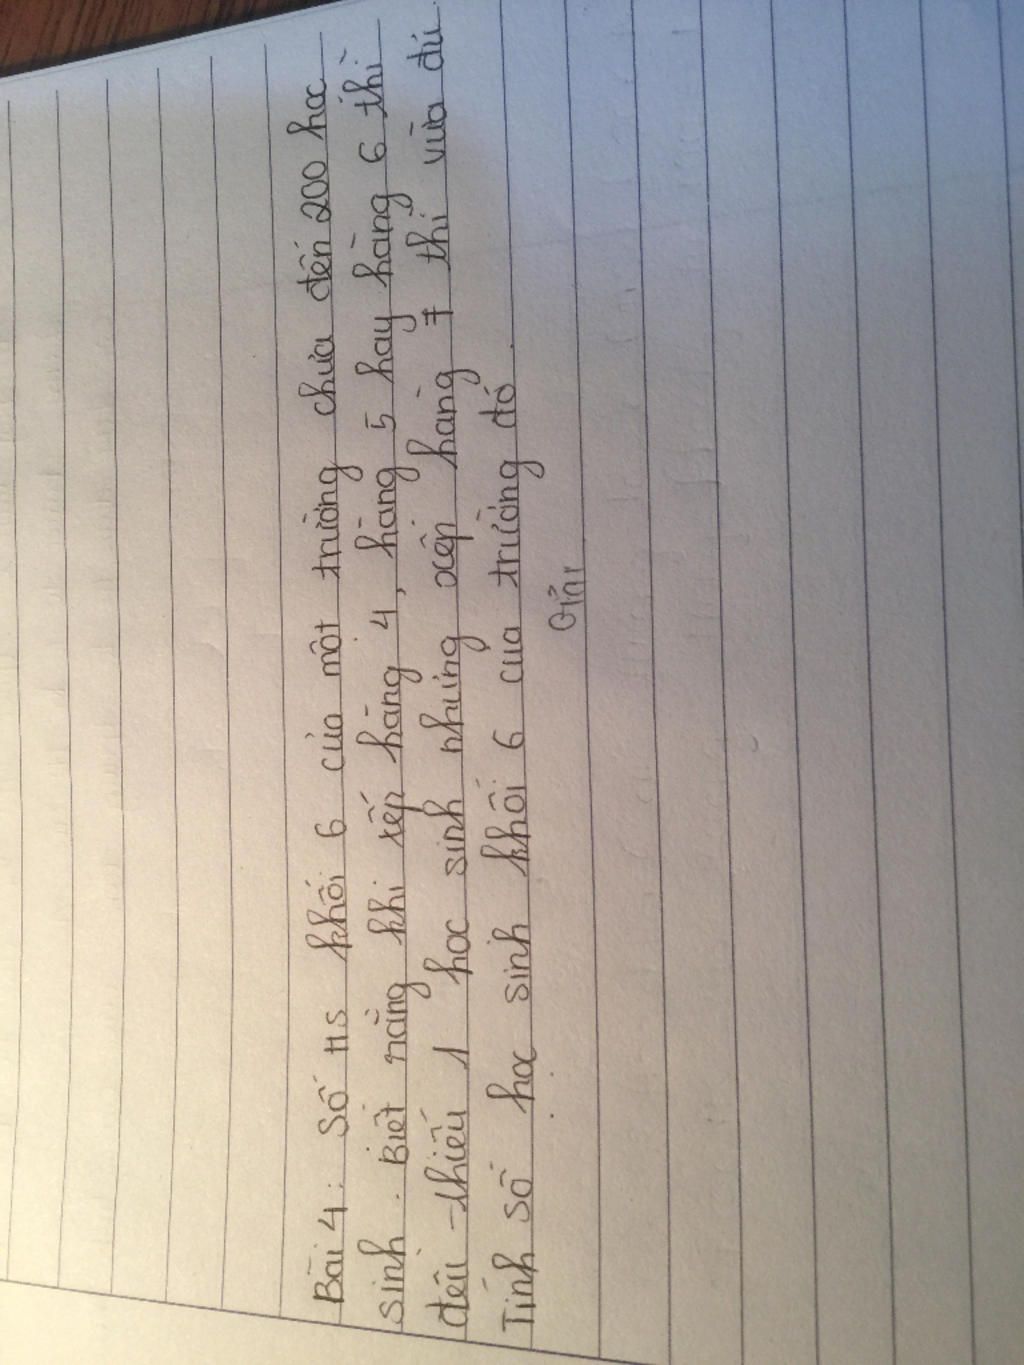 Bài 4: Số HS khối 6 của một trường chưa đến 200 học
sinh. Biết rằng khi xếp hàng 4, hàng 5 hay hàng 6 thì
đều thiếu 1 học sinh nhưng xếp hàng 7 thì vừa đủ.
Tính số học sinh khối 6 của trường đó.
Giải